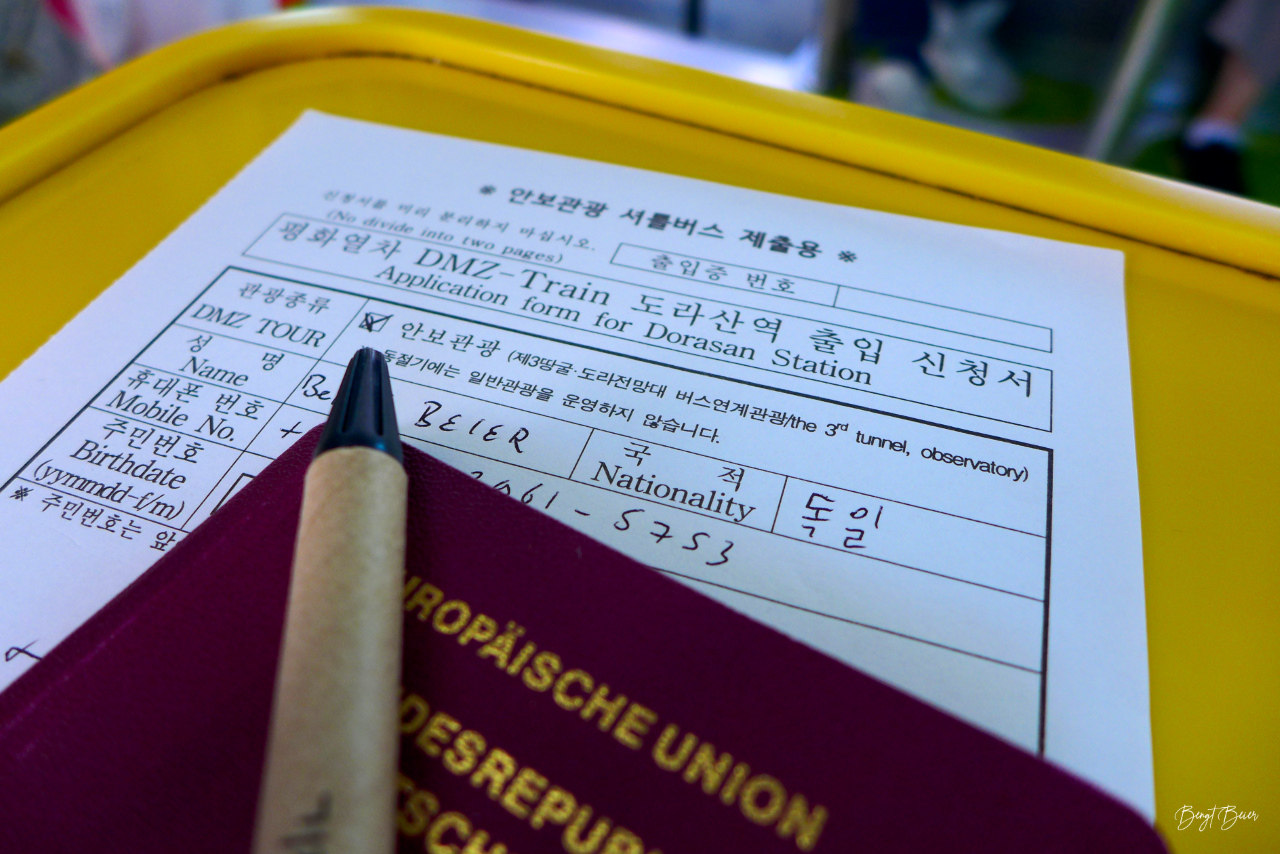 ※ 안보관광 셔틀버스 제출용 ※
신청서를 미리 분리하지 마십시오.
(No divide into two pages)
출입증 번호
평화열차 DMZ-Train 도라산역 출입 신청서
Application form for Dorasan Station
관광종류
DMZ TOUR
안보관광 (제3땅굴·도라전망대 버스연계관광/the 3rd tunnel, observatory)
동절기에는 일반관광을 운영하지 않습니다.
성 명
Name
Be BEIER
국 적
Nationality
독일
휴대폰 번호
Mobile No.
+ 2061-5753
주민번호
Birthdate
(yymmdd-f/m)
※ 주민번호는 앞
UROPÄISCHE UNION
DESREPUB
ESCH
Bengt Beier